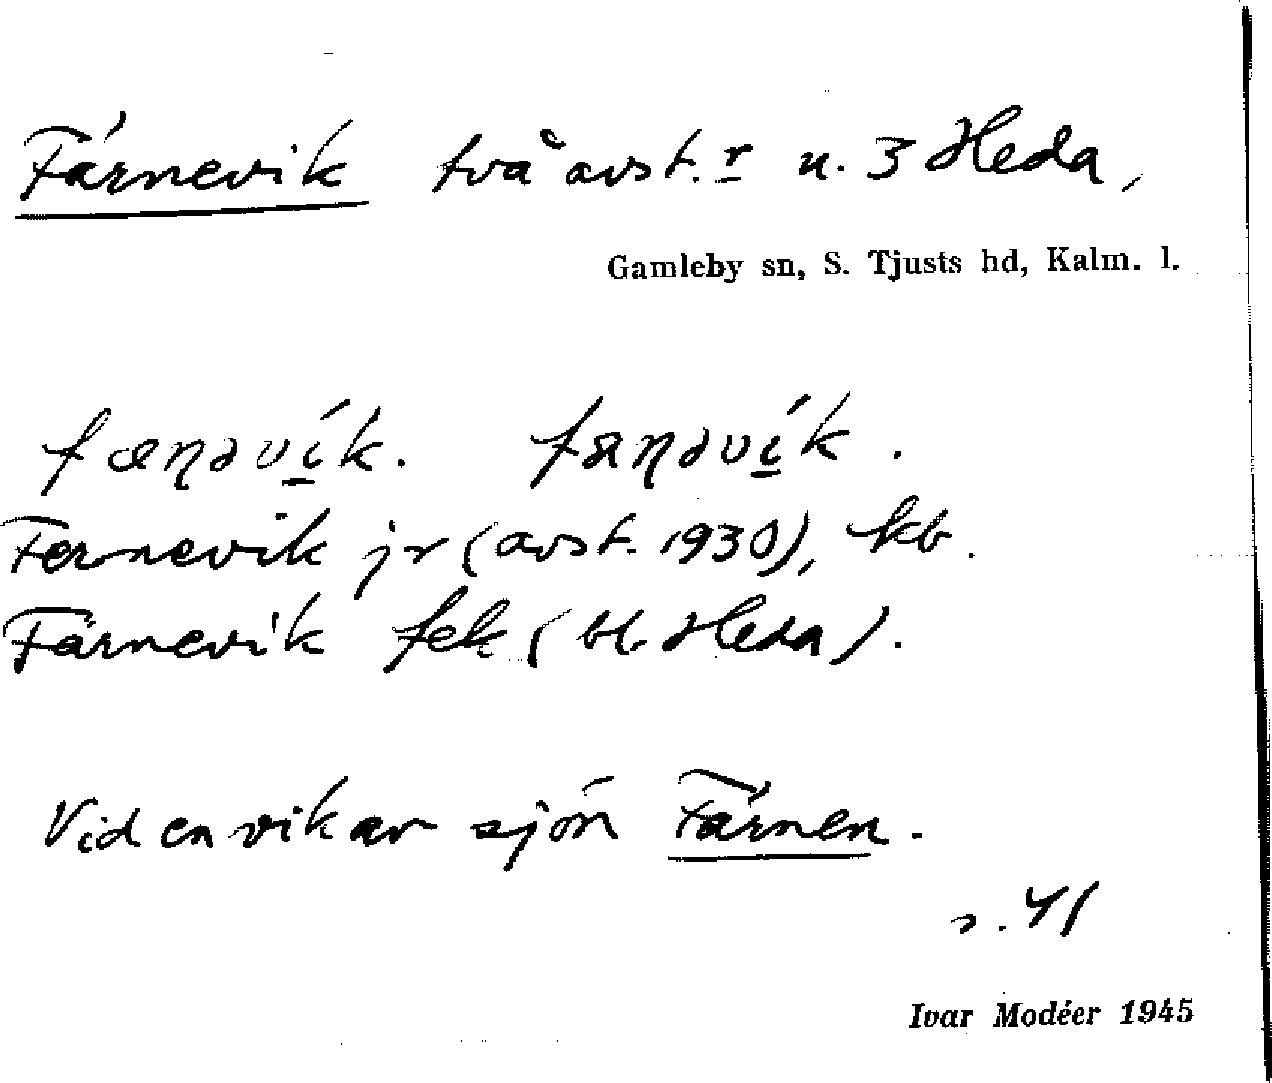 Färnevik två avst.r u. 3 Heda,
Gamleby sn, S. Tjusts hd, Kalm. l.
fæṇəvík. fäṇəvík.
Fernevik jr (avst. 1930), kb.
Färnevik fek (bl. Heda).
Vid en vik av sjön Färnen.
s. 41
Ivar Modéer 1945